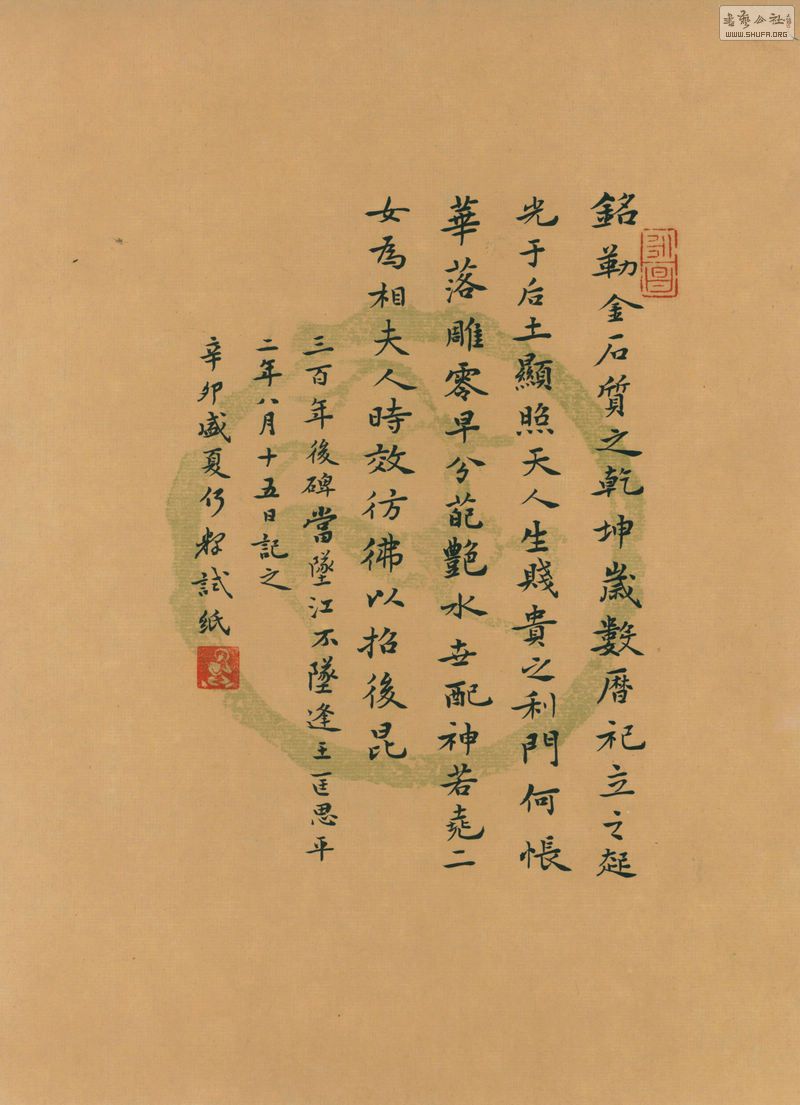 銘勒金石質之乾坤歲數曆祀立之起
光于后土顯照天人生賤貴之利門何悵
華落雕零早分葩艷水世配神若堯二
女為相夫人時效彷彿以招後昆
三百年後碑當墜江不墜逢王匡思平
二年八月十五日記之
辛卯盛夏行試紙
書藝公社
WWW.SHUFA.ORG